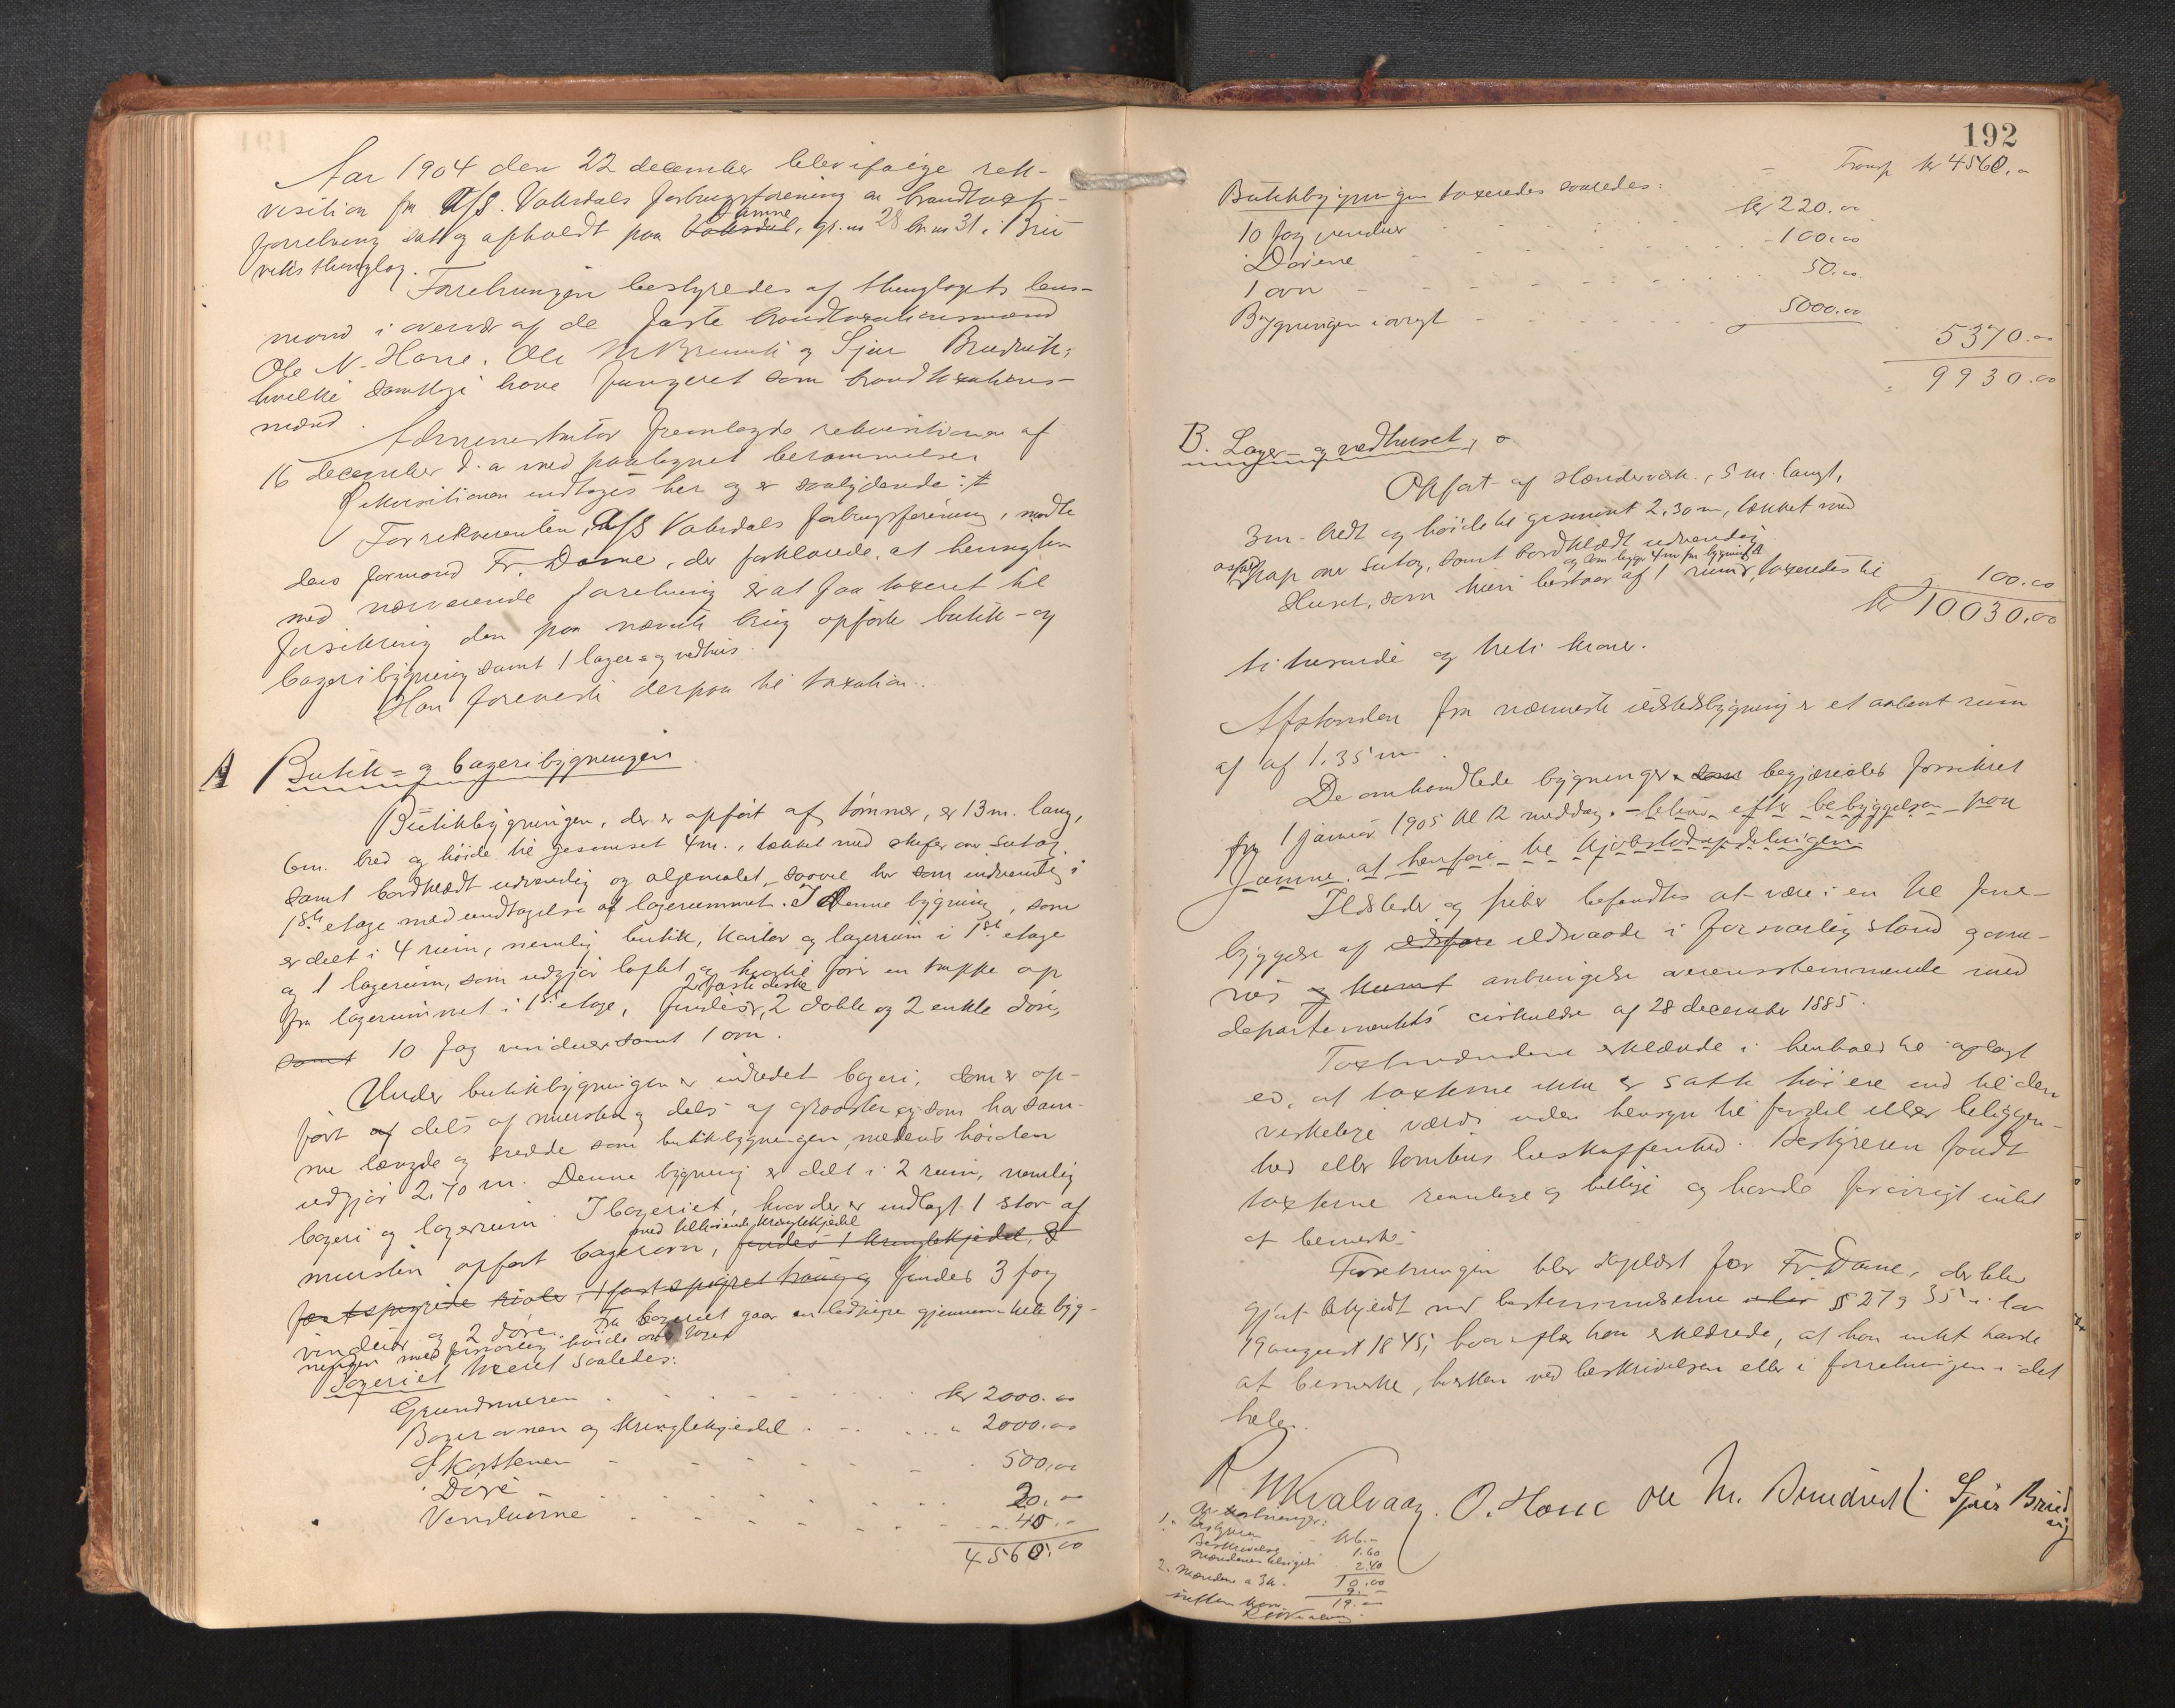 Aar 1904 den 22 december blev ifølge rek-
visition fra A/S. Vaksdals forbrugsforening en brandtaxt-
forretning sat og afholdt paa Jamne, gr. no 28 br. no 31 i Bru-
viks thinglag.
Forretningen bestyredes af thinglagets lens-
mand i overvær af de faste brandtaxationsmænd
Ole N. Hane. Ole M Bruvik og Sjur Bruvik,
hvilke samtlige have fungeret som brandtaxations-
mænd.
Administrator fremlagde rekvisitionen af
16 december d. a med paategnet berammelse
Rekvisitionen indtages her og er saalydende:
For rekvirenten, A/S Vaksdals forbrugsforening, mødte
dens formand Fr. Dane, der forklarede, at hensigten
med nærværende forretning er at faa taxeret til
forsikring den paa nævnte brug opførte butik- og
bageribygning samt 1 lager- og vedhus.
Han foreviste derpaa til taxation.
A Butik- og bageribygningen
Butikbygningen, der er opført af tømmer, er 13 m. lang,
6m. bred og høide til gesimset 4m., tækket med skifer over sutag.
samt bordklædt udvendig og oljemalet, saavel her som indvendig i
1ste etage med undtagelse af lagerrummet. I Denne bygning, som
er delt i 4 rum, nemlig butik, kontor og lagerrum i 1ste etage
og 1 lagerum, som udgjør loftet og hvortil fører en trappe op
fra lagerummet i 1ste etage, findes 2 faste diske, 2 doble og 2 enkle døre,
samt 10 fag vinduer samt 1 ovn.
Under butikbygningen er indredet bageri, som er op-
ført af dels af mursten og dels af graasten og som har sam-
me længde og bredde som butikbygningen, medens høiden
udgjør 2.70 m. Denne bygning er delt i 2 rum, nemlig
bageri og lagerrum. I bageriet, hvor der er indlagt 1 stor af
mursten opført bagerovn, med tilhørende kringlekjedel findes 1 kringlekjedel,
findes 3 fag
vinduer og 2 døre. Fra bageriet gaar en ledpibe gjennem hele byg-
ningen med forsvarlig høide over taget
Bageriet taxeret saaledes:
Grundmuren kr 2000.00
Bagerovnen og kringlekjedel " 2000.00
Skorstenen 500,00
Døre 20.-
Vinduerne 40.-
4560.00
192
Transp kr 4560.00
Butikbygningen taxeredes saaledes:
10 fag vinduer kr 220.00
Dørene - 100.00
1 ovn 50.00
Bygningen iøvrigt 5000.00
5370.00
9930.00
B. Lager- og vedhuset,
Opført af , 5 m. langt,
3m. bredt og høide til gesimset 2,30 m, tækket med
asfaltpap over sutag, samt bordklædt udvendig
og som ligger 4 m fra bygning A
Huset, som kun bestaar af 1 rum, taxeredes til 100.00
kr 10030.00
ti tusende og treti kroner.
Afstanden fra nærmeste ildstedsbygning er et aabent rum
af af 1.35 m.
De omhandlede bygninger som begjæredes forsikret
fra 1 januar 1905 kl 12 middag. - bliver efter bebyggelsen paa
Jamne at henføre til kjøbstadsafdelingen.
Ildsteder og piber befandtes at være i en til fore-
byggelse af ildsfare ildsvaade i forsvarlig stand og ov-
nes og kunst anbringelse overensstemmende med
departementets cirkulære af 28 december 1885.
Taxtmændene erklærede i henhold til aflagt
ed, at taxterne ikke er satte høiere end til den
virkelige værdi uden hensyn til fordel eller beliggen-
hed eller tomtens beskaffenhed. Bestyreren fandt
taxterne rimelige og billige og havde forøvrigt intet
at bemerke.
Forretningen blev oplæst for Fr. Dane, der blev
gjort bekjendt med bestemmelserne § 27 og 35 i lov
19 august 1845, hvorefter han erklærede, at han intet havde
at bemerke, hverken ved beskrivelsen eller i forretningen i det
hele.
R Kvalvaag. O. Hane Ole M. Bruvik Sjur Bruvig
1. Bestyreren kr 6.-
Beskrivelse 1.60
Mændenes 2.40
10.00
2. Mændene a 3 kr. 9.-
nitten kron. 19.-